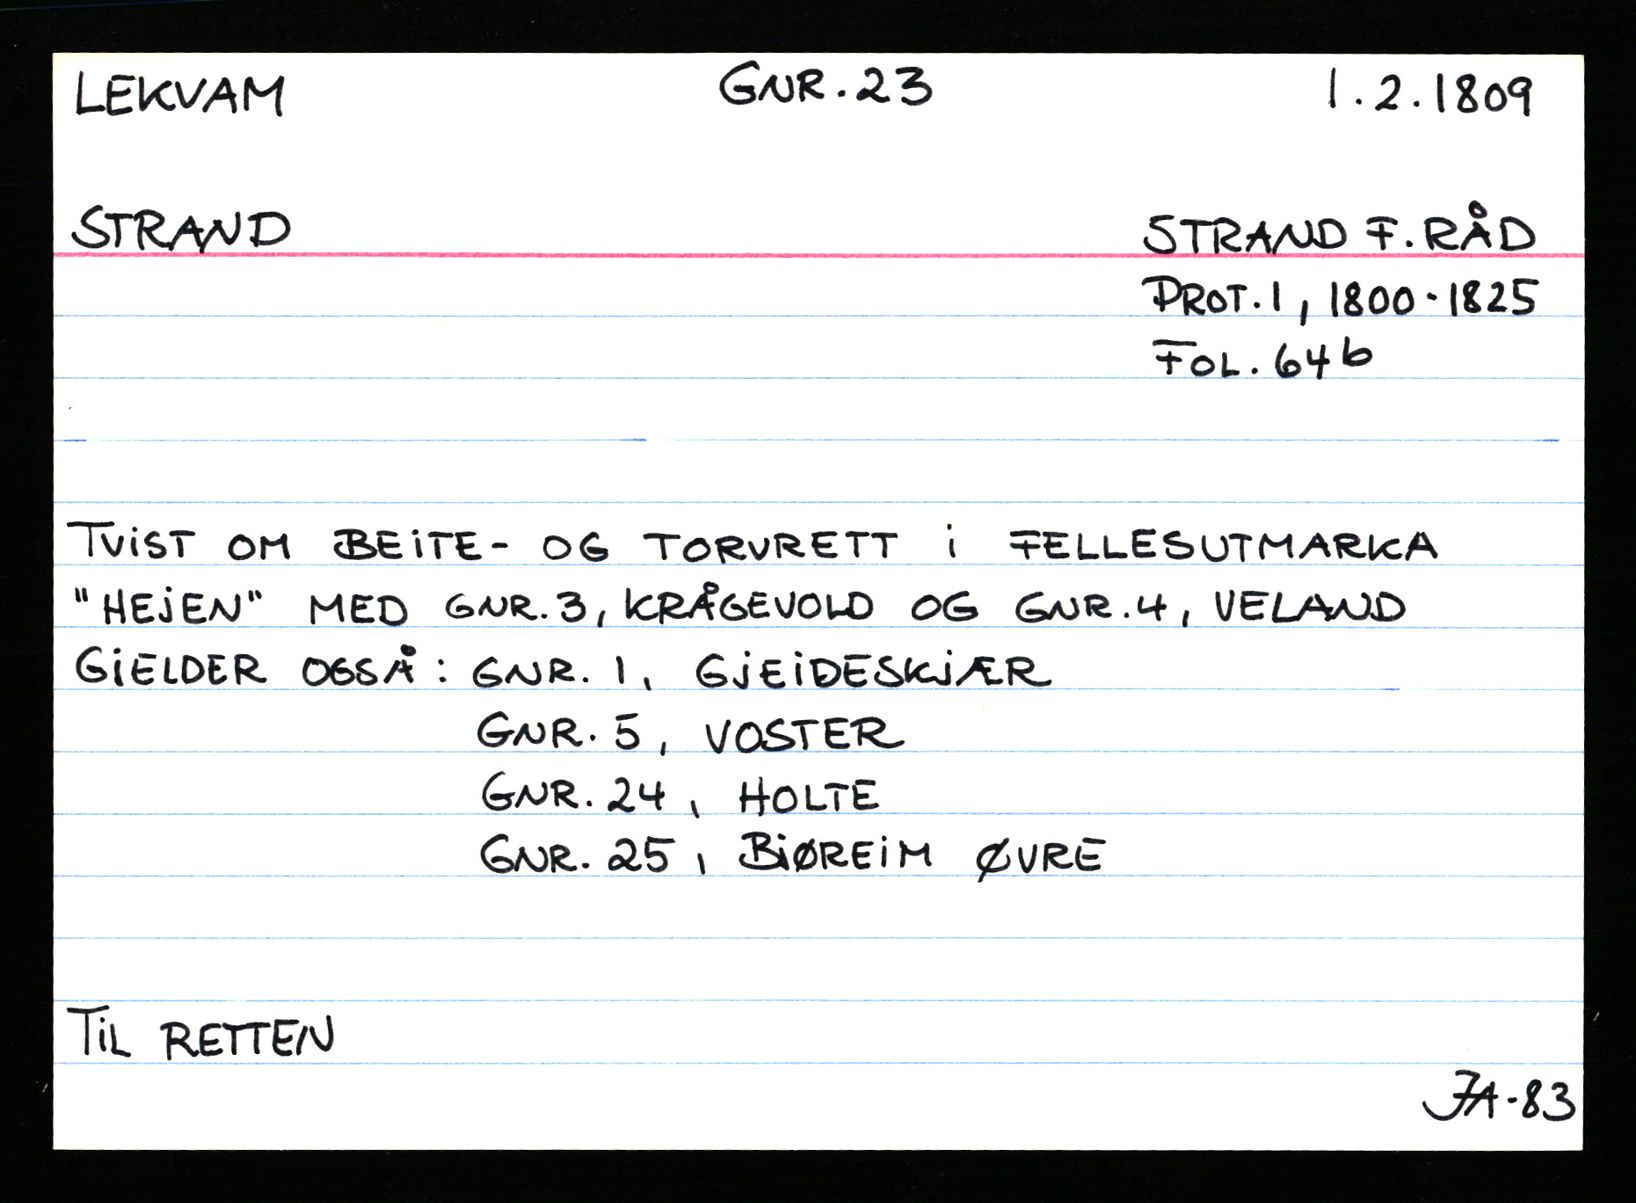 LEKVAM GNR. 23 1.2.1809
STRAND STRAND F. RÅD
PROT. 1, 1800-1825
FOL. 64 b
TVIST OM BEITE- OG TORVRETT I FELLESUTMARKA
"HEJEN" MED GNR. 3, KRÅGEVOLD OG GNR. 4, VELAND
GIELDER OGSÅ: GNR. 1, GJEIDESKJÆR
GNR. 5, VOSTER
GNR. 24, HOLTE
GNR. 25, BIØREIM ØVRE
TIL RETTEN
JA-83